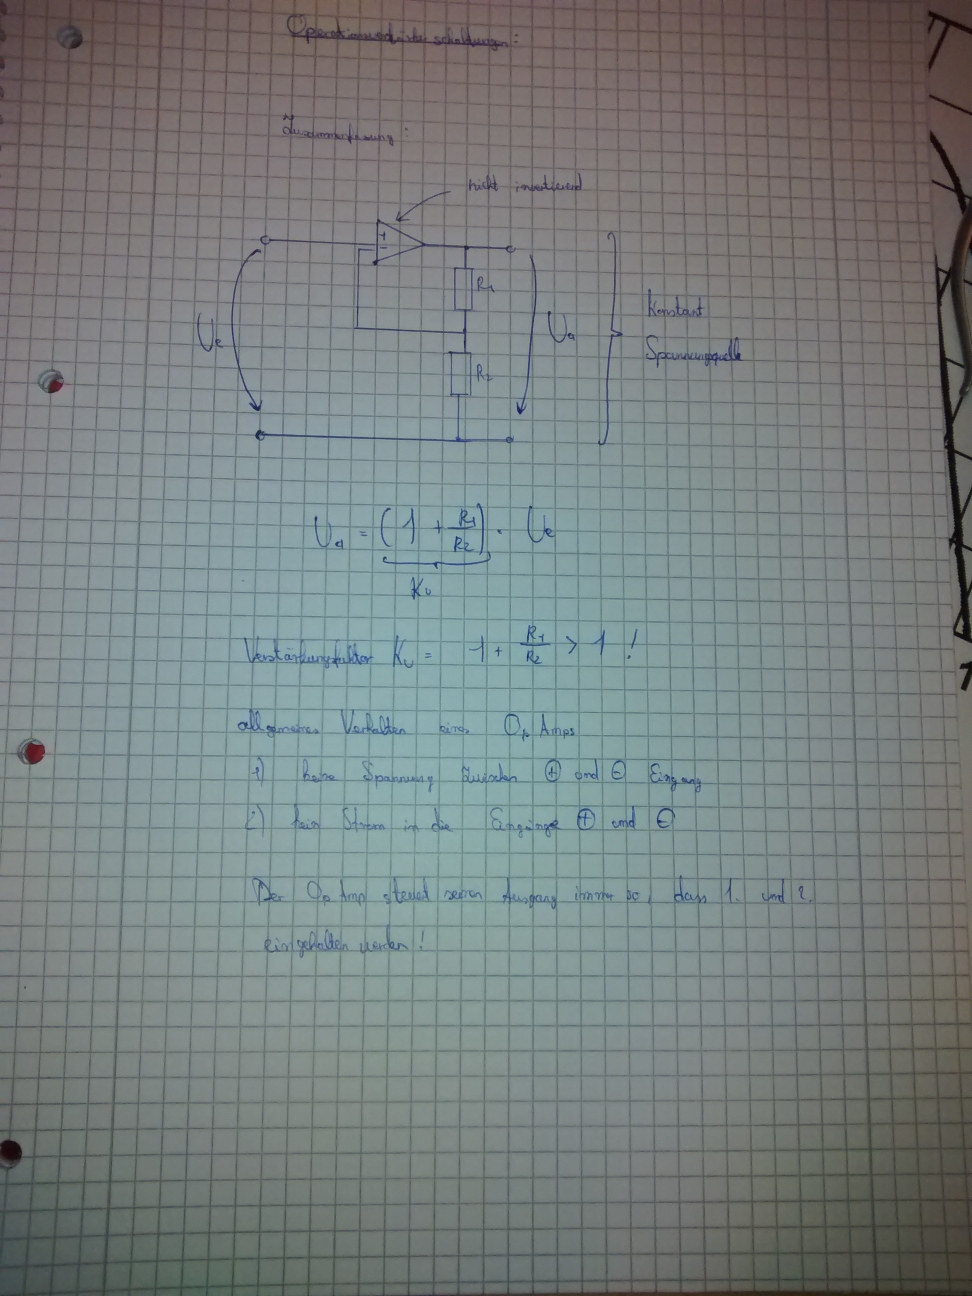 Operationsverstärkerschaltungen:
Zusammenfassung:
nicht invertierend
+
-
R1
Konstant
Ue
Ua
Spannungsquelle
R2
Ua = (1 + R1/R2) · Ue
Ku
Verstärkungsfaktor Ku = 1 + R1/R2 > 1 !
allgemeines Verhalten eines Op Amps
1) keine Spannung zwischen ⊕ und ⊖ Eingang
2) kein Strom in die Eingänge ⊕ und ⊖
Der Op Amp steuert seinen Ausgang immer so, dass 1. und 2.
eingehalten werden !